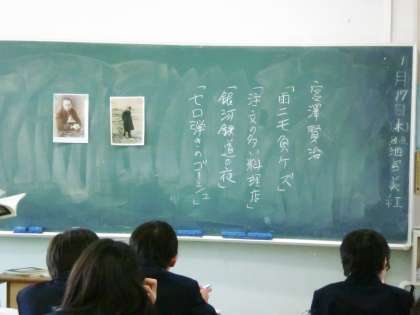 1月17日(木)
宮澤賢治
「雨ニモ負ケズ」
「注文の多い料理店」
「銀河鉄道の夜」
「セロ弾きのゴーシュ」